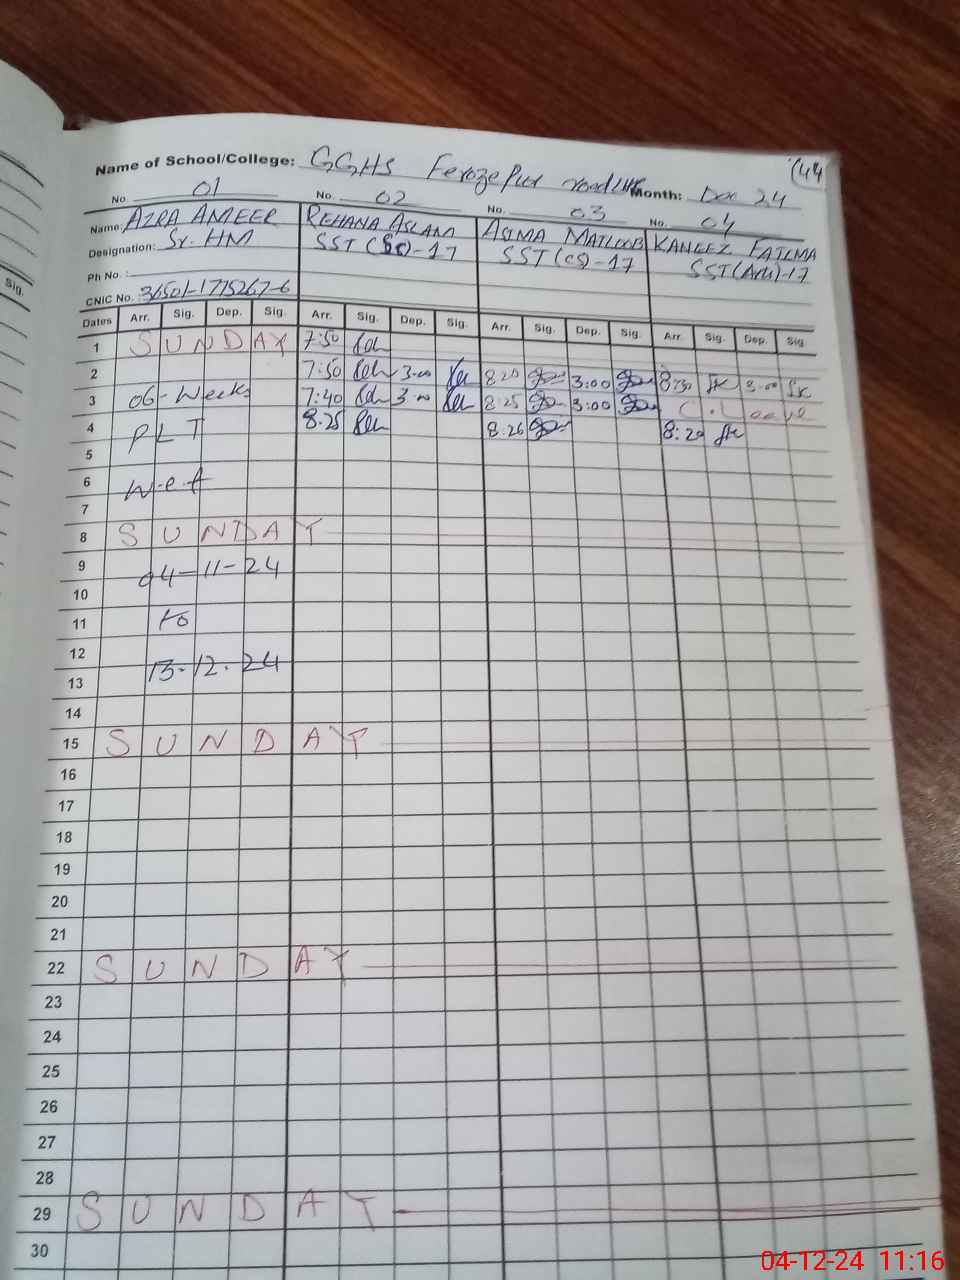 (44
Name of School/College: GGHS Ferozepur road LHR Month: Dec 24
No. 01 No. 02 No. 03 No. 04
Name: AZRA AMEER REHANA ASLAM ASIMA MATLOOB KANEEZ FATIMA
Designation: Sr. HM SST(Sc)-17 SST(CS)-17 SST(Art)-17
Ph No.:
CNIC No. 36501-1775267-6
Dates Arr. Sig. Dep. Sig. Arr. Sig. Dep. Sig. Arr. Sig. Dep. Sig. Arr. Sig. Dep. Sig.
1 SUNDAY 7:50
2 7:50 3:00 8:20 3:00 8:30 3:00
3 06-Weeks 7:40 3:00 8:25 3:00 C. Leave
4 PLT 8:25 8:26 8:20
5
6 w.e.f
7
8 SUNDAY
9 04-11-24
10
11 to
12
13 13.12.24
14
15 SUNDAY
16
17
18
19
20
21
22 SUNDAY
23
24
25
26
27
28
29 SUNDAY
30
Sig.
04-12-24 11:16